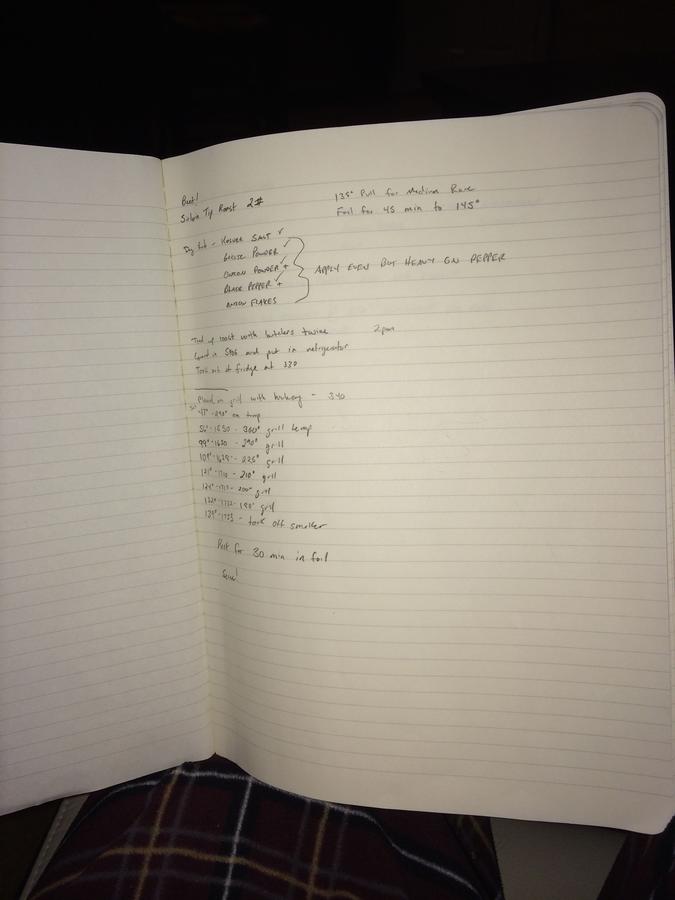 Beef!
Sirloin Tip Roast 2#
135° Pull for Medium Rare
Foil for 45 min to 145°
Dry Rub - KOSHER SALT ✓
GARLIC POWDER ✓
ONION POWDER +
BLACK PEPPER ✓ +
ONION FLAKES
APPLY EVEN BUT HEAVY ON PEPPER
Tied up roast with butchers twine 2pm
and put in refrigerator
Took out of fridge at 330
Placed on grill with hickory - 340
on temp
- 300° grill temp
99° - 1620 - 290° grill
- 225° grill
121° - 1710 - 210° grill
- 200° grill
132° - 1732 - 190° grill
- took off smoker
Rest for 30 min in foil